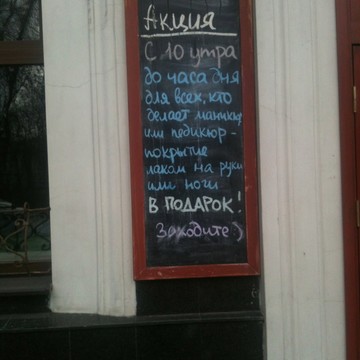 Акция
С 10 утра
до часа дня
для всех, кто
делает маникюр
или педикюр -
покрытие
лаком на руки
или ноги
В ПОДАРОК!
Заходите :)